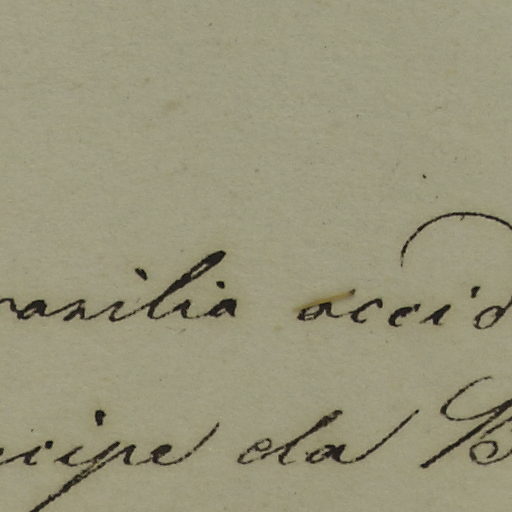 rasilia accid
cipe da B